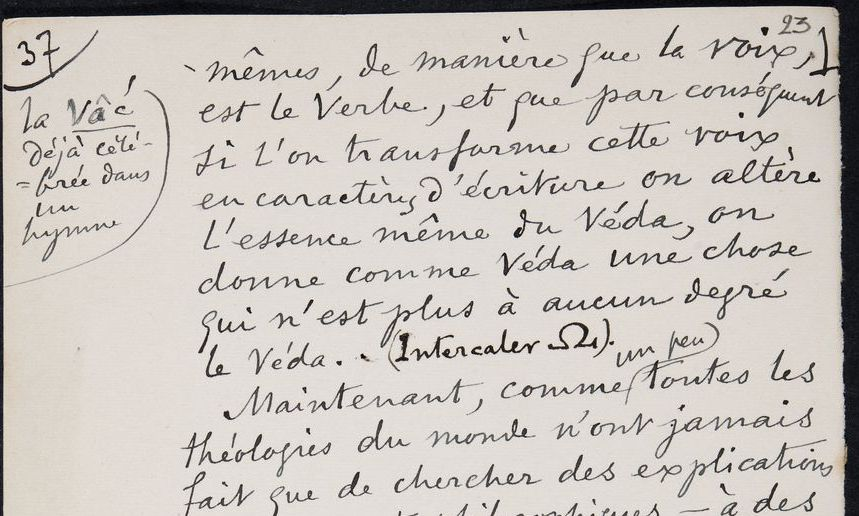 37
23
la Vâć
déjà célé-
=brée dans
un
hymne
mêmes, de manière que la voix,
est le Verbe, et que par conséquent
si l'on transforme cette voix
en caractères d'écriture on altère
l'essence même du Véda, on
donne comme Véda une chose
qui n'est plus à aucun degré
le Véda.. (Intercaler Ω1).
un peu
Maintenant, comme toutes les
théologies du monde n'ont jamais
fait que de chercher des explications
– à des